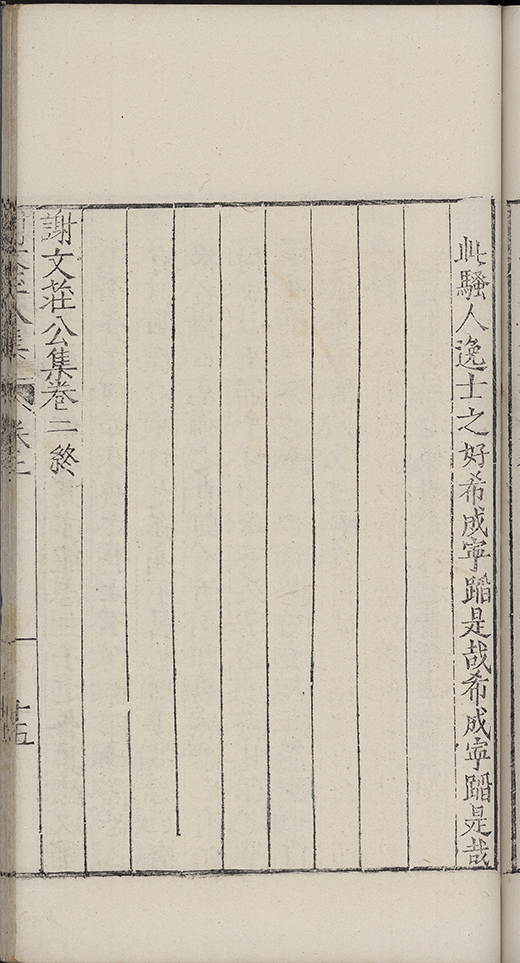 此騷人逸士之好希成寧蹈是哉希成寧蹈是哉
謝文荘公集卷二終
文莊公集 卷二 十五